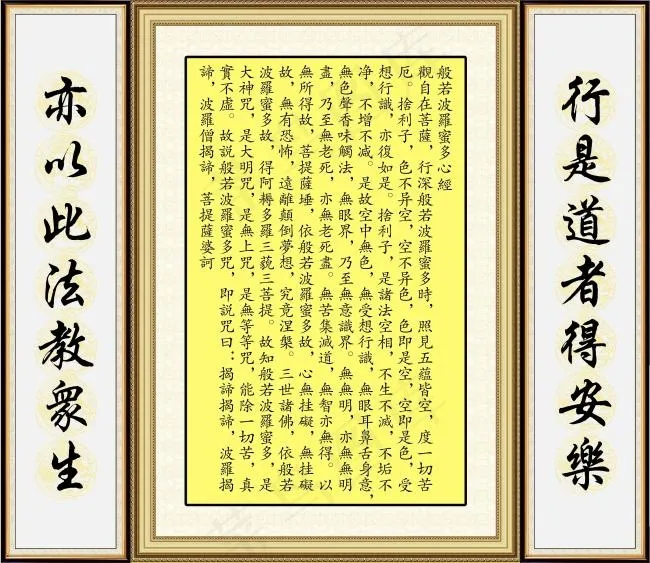 行是道者得安樂
般若波羅蜜多心經
觀自在菩薩，行深般若波羅蜜多時，照見五蘊皆空，度一切苦
厄。捨利子，色不异空，空不异色，色即是空，空即是色，受
想行識，亦復如是。捨利子，是諸法空相，不生不滅，不垢不
净，不增不减。是故空中無色，無受想行識，無眼耳鼻舌身意，
無色聲香味觸法，無眼界，乃至無意識界。無無明，亦無無明
盡，乃至無老死，亦無老死盡。無苦集滅道，無智亦無得。以
無所得故，菩提薩埵，依般若波羅蜜多故，心無挂礙，無挂礙
故，無有恐怖，遠離顛倒夢想，究竟涅槃。三世諸佛，依般若
波羅蜜多故，得阿耨多羅三藐三菩提。故知般若波羅蜜多，是
大神咒，是大明咒，是無上咒，是無等等咒，能除一切苦，真
實不虛。故説般若波羅蜜多咒，即説咒曰：揭諦揭諦，波羅揭
諦，波羅僧揭諦，菩提薩婆訶
亦以此法教衆生